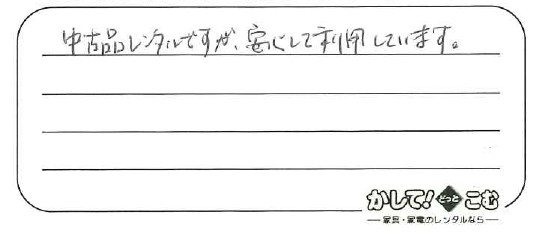 中古品レンタルですが、安心して利用しています。
かして!どっとこむ
家具・家電のレンタルなら